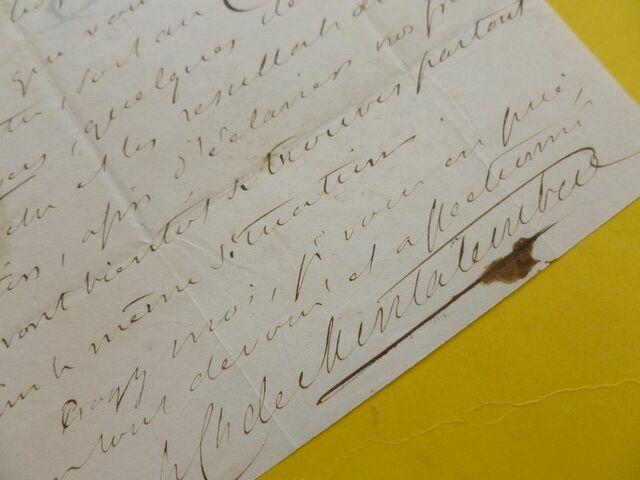 que vou
, soit au
quelques de
et les resultats d
, après d'éclairer nos fr
vont bientot se trouver partout
la même situation.
Croyez moi, je vous en prie,
tout dévoué et affectionné
Ch de Montalembert